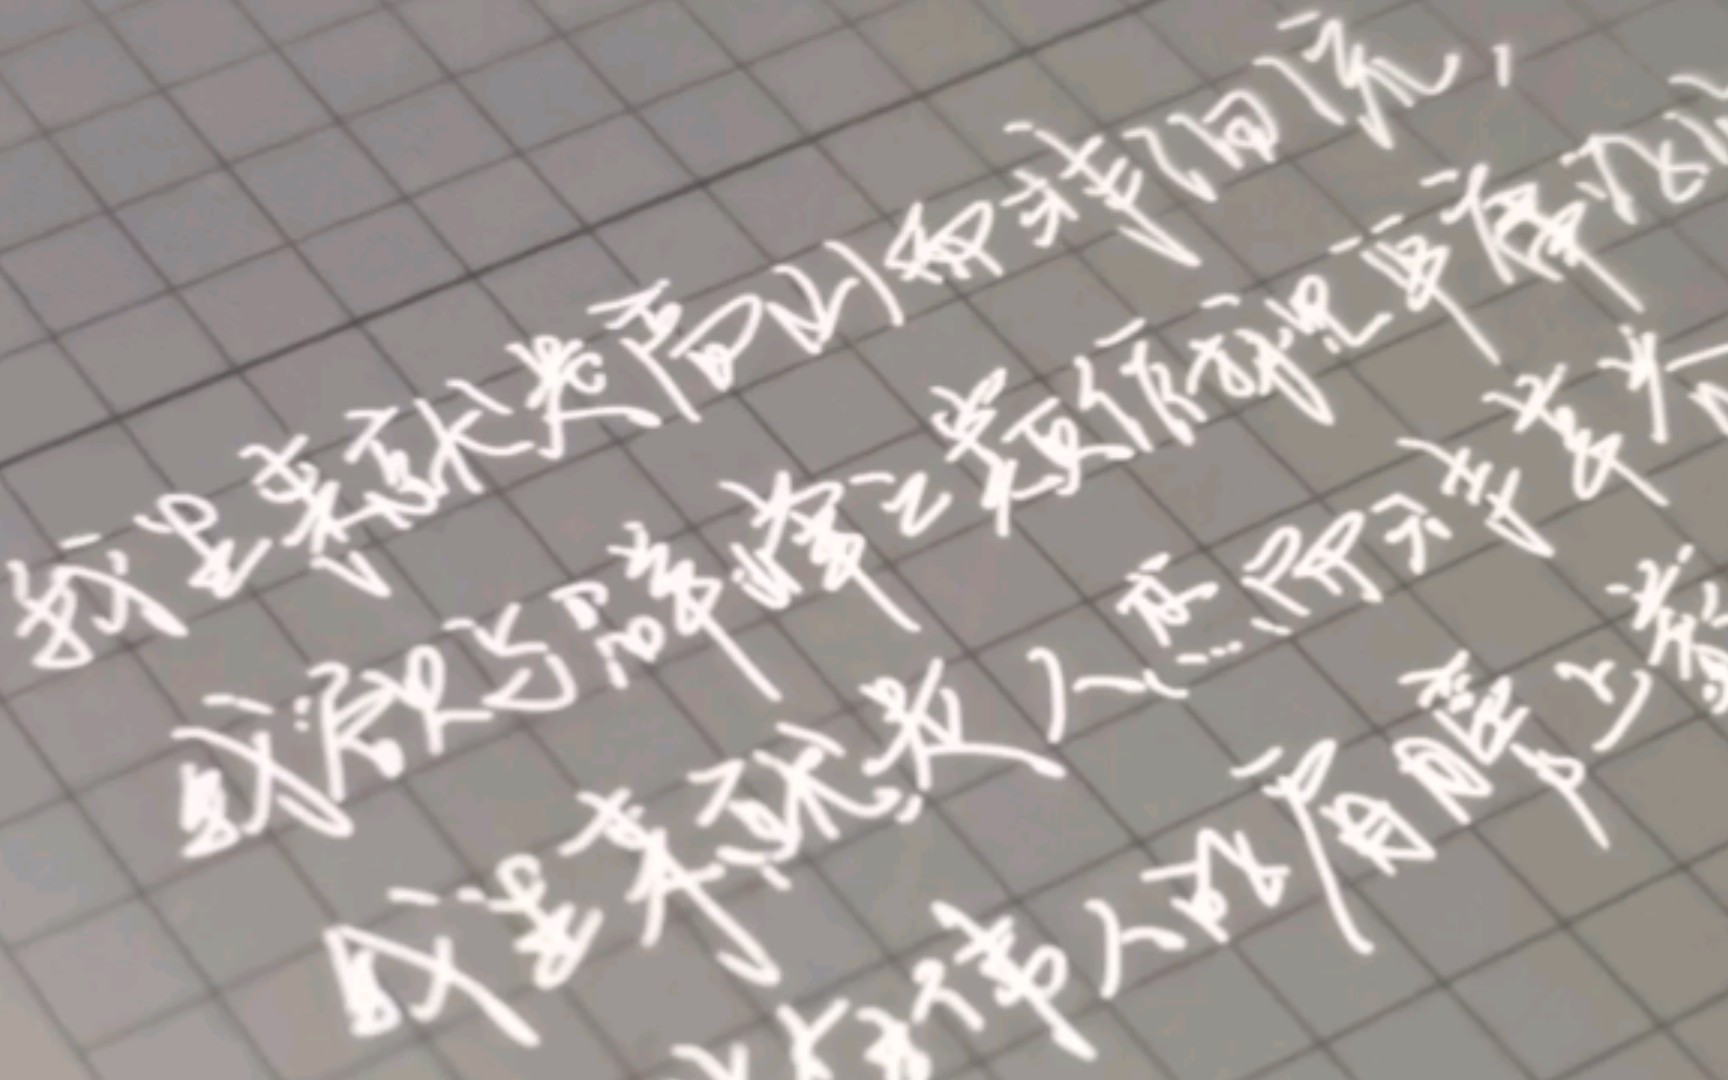 我生来就是高山而非溪流，
我欲于群峰之巅俯视平庸的沟
我生来就是人杰而非草芥
我站在伟人的肩膀上藐